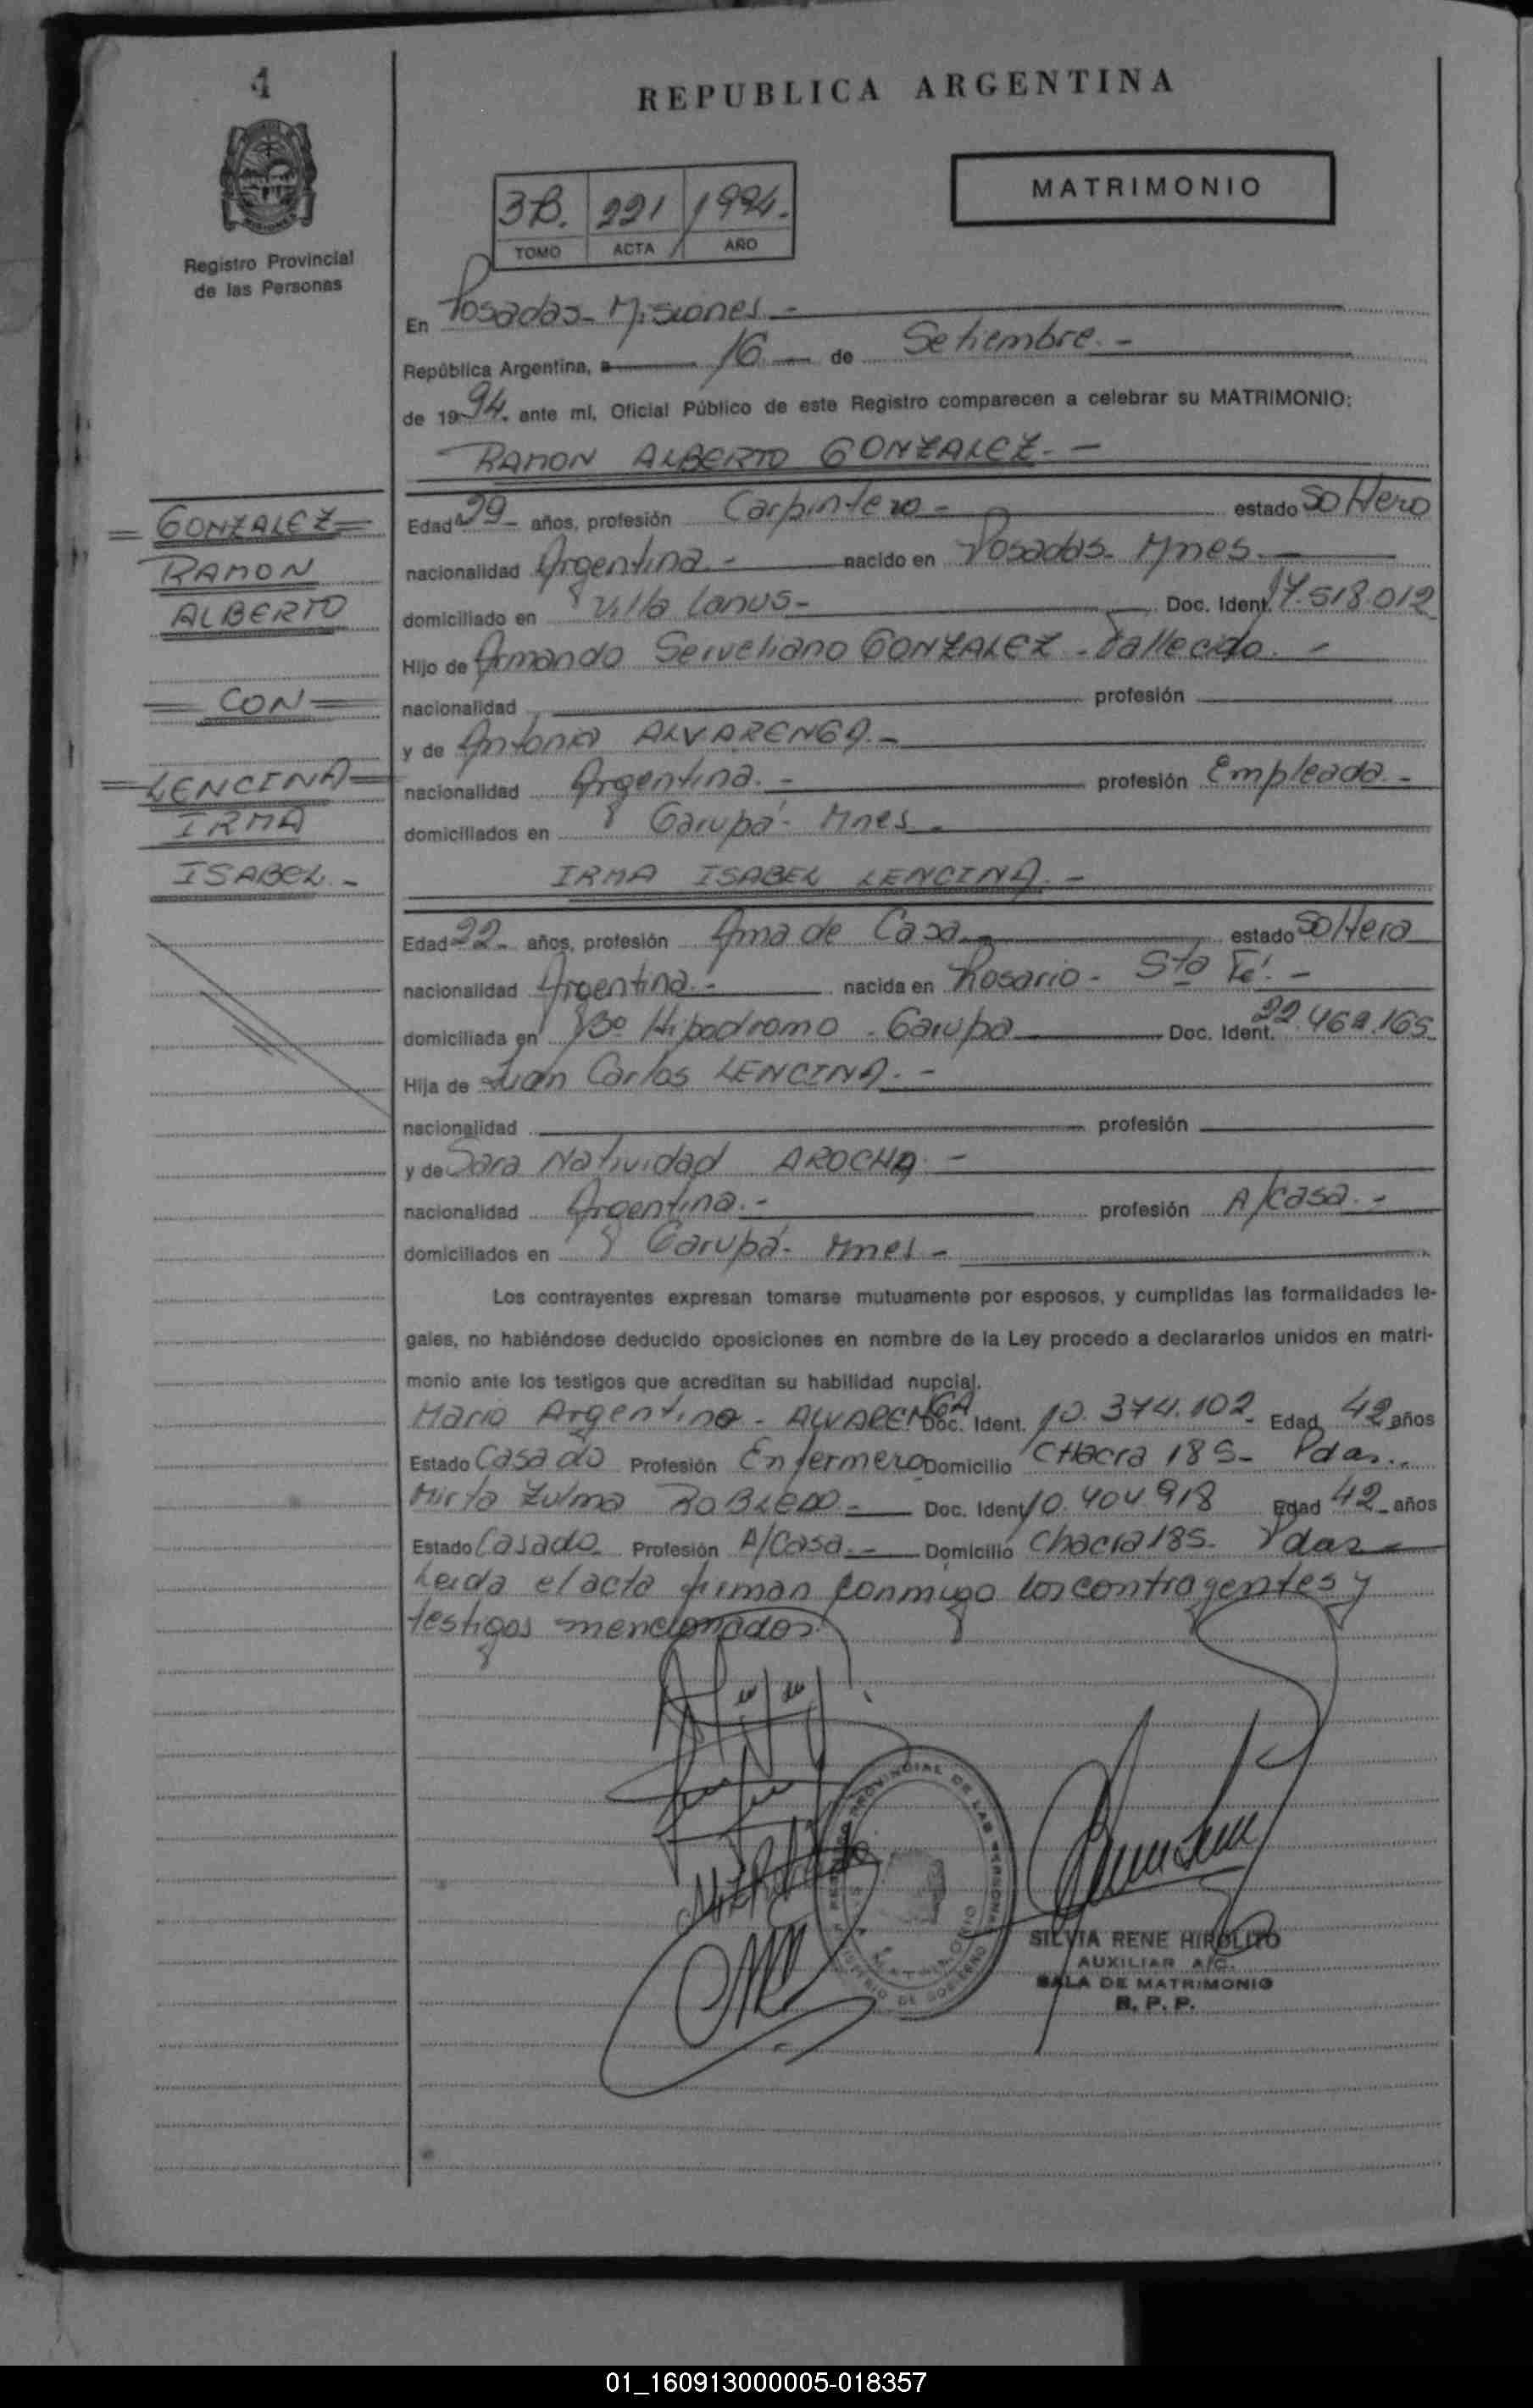 1
REPUBLICA ARGENTINA
MATRIMONIO
3B. 221 1994.
TOMO ACTA AÑO
Registro Provincial
de las Personas
En Posadas - Misiones -
República Argentina, a 16 de Setiembre. -
de 1994. ante mí, Oficial Público de este Registro comparecen a celebrar su MATRIMONIO:
RAMON ALBERTO GONZALEZ. -
GONZALEZ
RAMON
ALBERTO
CON
LENCINA
IRMA
ISABEL. -
Edad 29 años, profesión Carpintero - estado Soltero
nacionalidad Argentina. - nacido en Posadas - Mnes. -
domiciliado en Villa Lanus - Doc. Ident. 17.518.012
Hijo de Armando Serveliano GONZALEZ - Fallecido. -
nacionalidad profesión
y de Antonia ALVARENGA. -
nacionalidad Argentina. - profesión Empleada. -
domiciliados en Garupá - Mnes -
IRMA ISABEL LENCINA. -
Edad 22 - años, profesión Ama de Casa. - estado Soltera
nacionalidad Argentina. - nacida en Rosario - Sta Fé. -
domiciliada en Bº Hipodromo - Garupa Doc. Ident. 22.462.165
Hija de Juan Carlos LENCINA. -
nacionalidad profesión
y de Sara Natividad AROCHA. -
nacionalidad Argentina. - profesión A/casa. -
domiciliados en Garupá - Mnes -
Los contrayentes expresan tomarse mutuamente por esposos, y cumplidas las formalidades le-
gales, no habiéndose deducido oposiciones en nombre de la Ley procedo a declararlos unidos en matri-
monio ante los testigos que acreditan su habilidad nupcial.
Mario Argentino - ALVARENGA Doc. Ident. 10.374.102 Edad 42 años
Estado Casado Profesión Enfermero Domicilio CHacra 185 - Pdas..
Mirta Zulma ROBLEDO. - Doc. Ident 10.404.918 Edad 42 - años
Estado Casado Profesión A/Casa. - Domicilio Chacra 185 - Pdas -
Leida el acta firman conmigo los contrayentes y
testigos mencionados.
REGISTRO PROVINCIAL DE LAS PERSONAS
MATRIMONIO
MINISTERIO DE GOBIERNO
SILVIA RENE HIPOLITO
AUXILIAR A/C.
SALA DE MATRIMONIO
R. P. P.
01_160913000005-018357